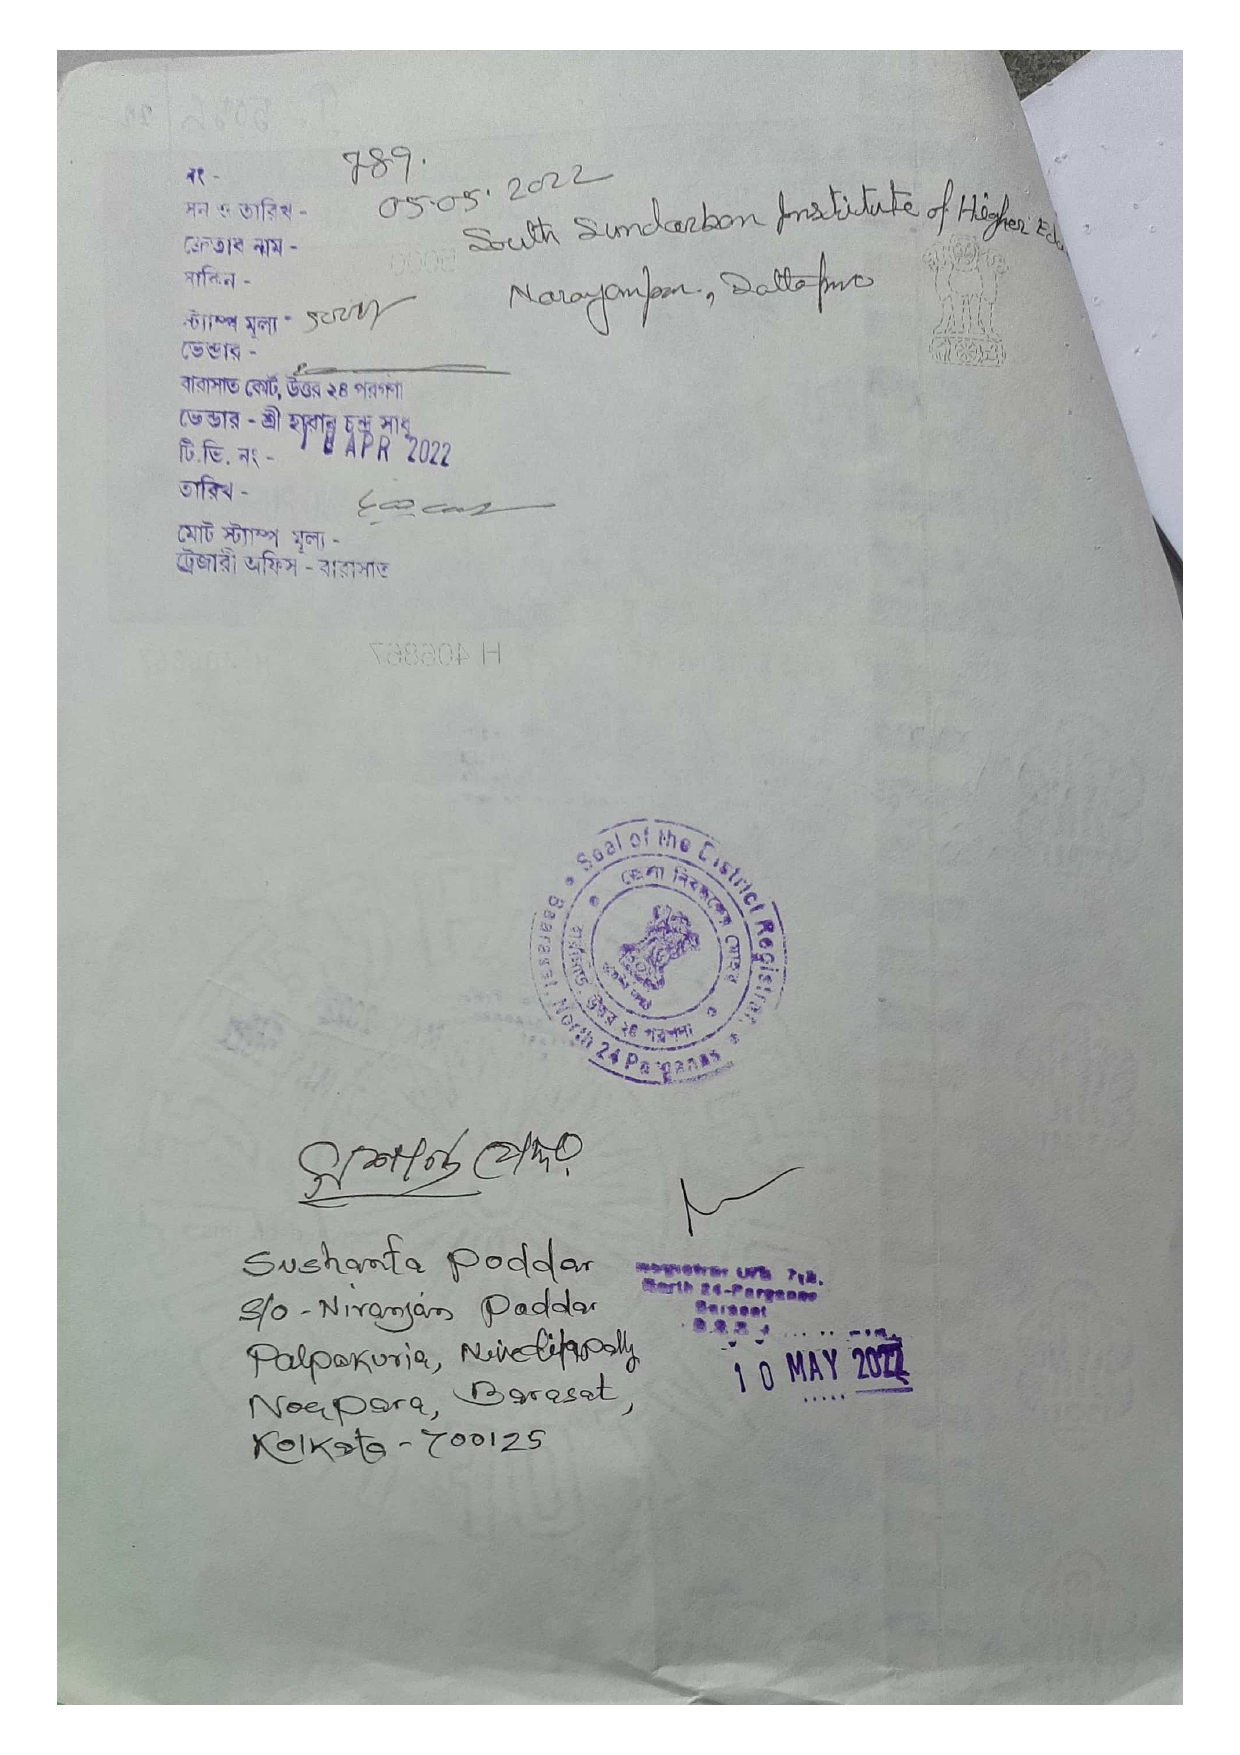 নং - 789.
সন ও তারিখ - 05.05.2022
ক্রেতার নাম - South Sundarban Institute of Higher Edu
সাকিন - Narayanpur, Dattapur
স্ট্যাম্প মূল্য -
ভেন্ডার -
বারাসাত কোর্ট, উত্তর ২৪ পরগণা
ভেন্ডার - শ্রী হারান চন্দ্র সাধু
টি.ভি. নং - APR 2022
তারিখ -
মোট স্ট্যাম্প মূল্য -
ট্রেজারী অফিস - বারাসাত
H 406867
Seal of the District Registrar
Baarasat, North 24 Parganas
জেলা নিবন্ধকের মোহর
বারাসাত, উত্তর ২৪ পরগণা
সুশান্ত পোদ্দার
Sushanta Poddar
S/o - Niranjan Poddar
Palpakuria, Niveditapally
Noapara, Barasat,
Kolkata - 700125
Registrar U/S 7(2)
North 24-Parganas
Barasat
10 MAY 2022